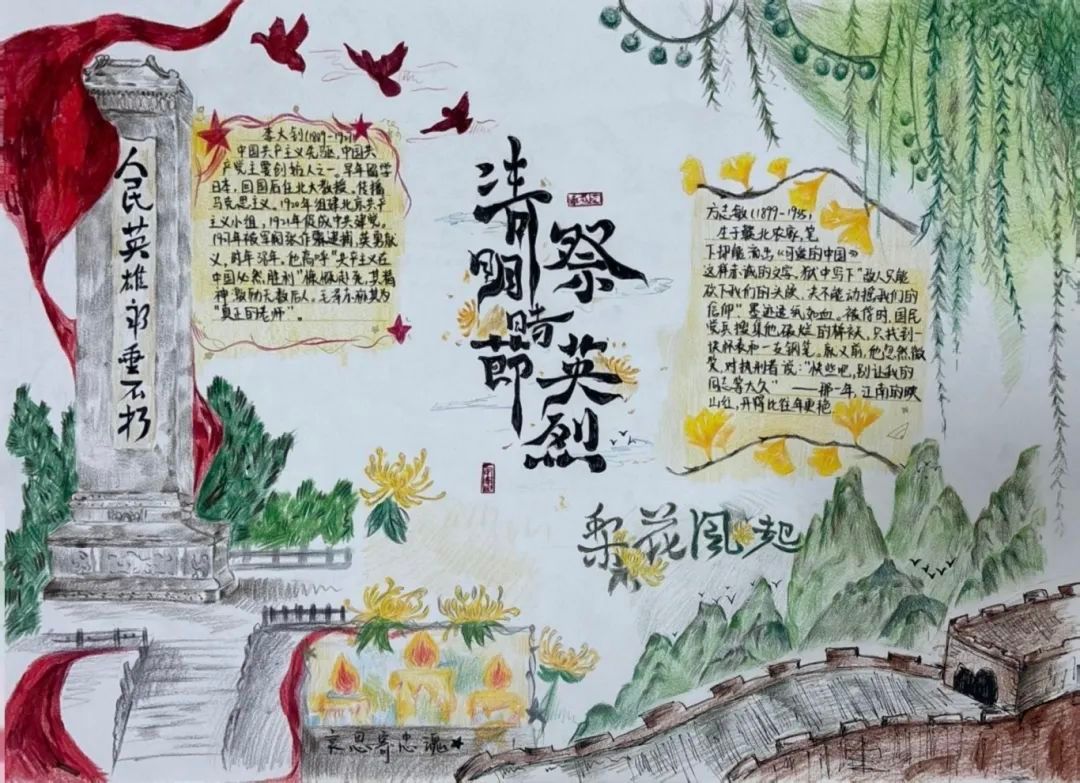 人民英雄永垂不朽
李大钊(1889-1927)
中国共产主义先驱,中国共
产党主要创始人之一。早年留学
日本,回国后任北大教授。传播
马克思主义。1920年组建北京共产
主义小组,1921年促成中共建党。
1927年被军阀张作霖逮捕,英勇就
义,时年38年,他高呼"共产主义在
中国必然胜利"慷慨赴死,其精
神激励无数后人。毛泽东称其为
"真正的老师"。
清明时节
祭英烈
方志敏(1899-1935,
生于赣北农家,笔
下却能淌出《可爱的中国》
这样赤诚的文字。狱中写下"敌人只能
砍下我们的头颅,决不能动摇我们的
信仰"墨迹透纸如血。被俘时,国民
党兵搜集他破烂的棉袄,只找到一
块怀表和一支钢笔。就义前,他忽然微
笑,对执刑者说:"快些吧,别让我的
同志等太久"——那一年,江南的映
山红,开得比往年更艳
梨花风起
哀思寄忠魂